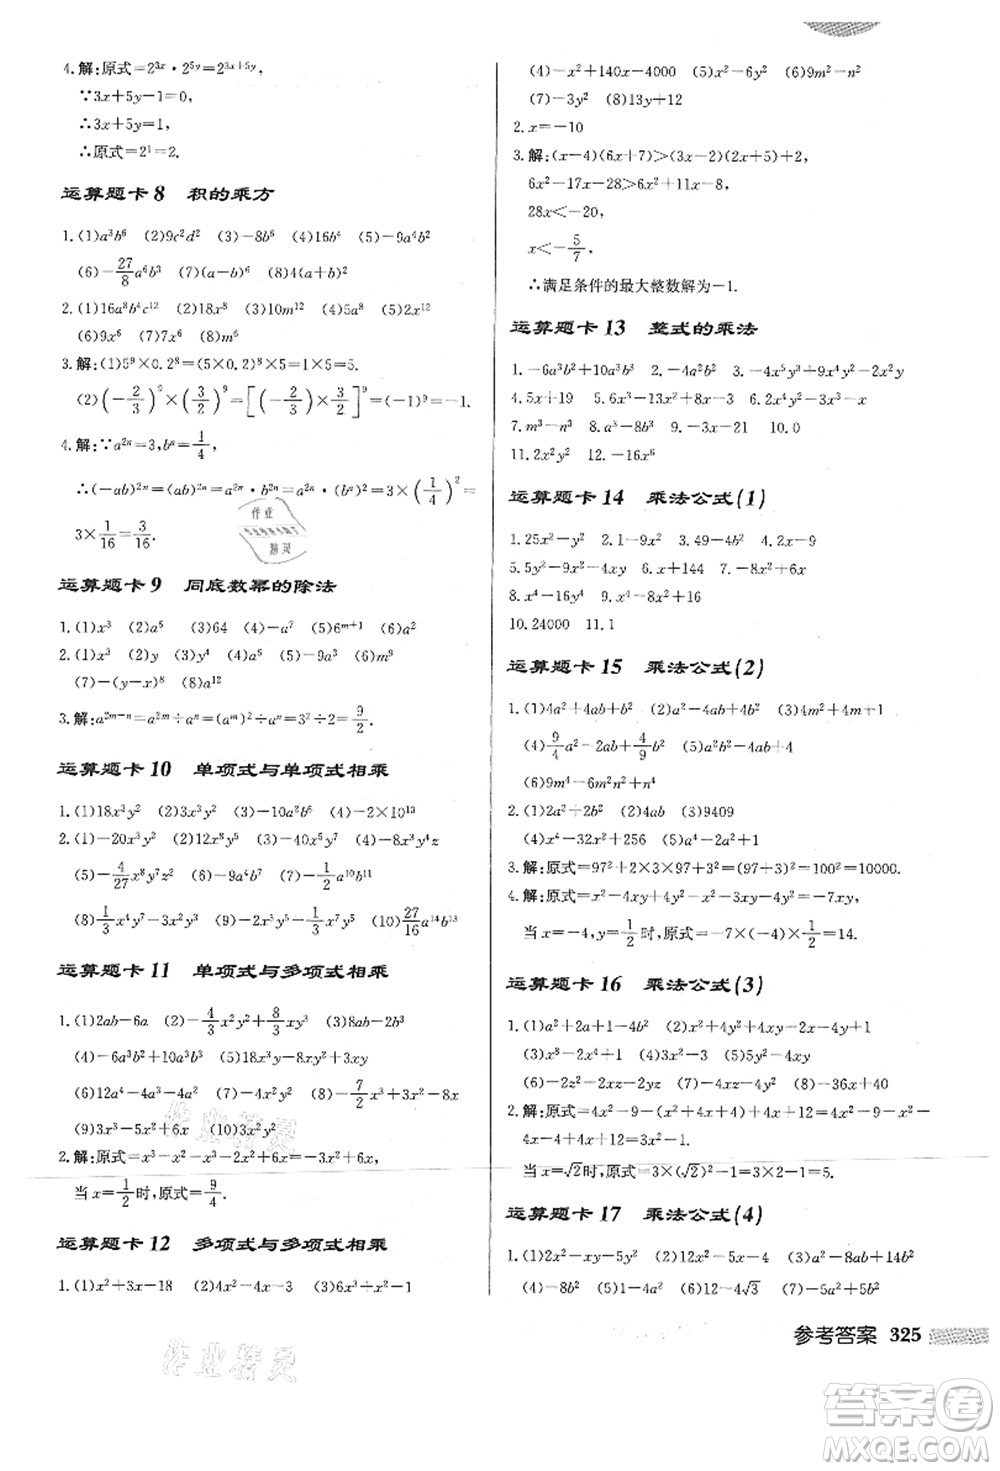 4.解:原式=2^{3x}·2^{5y}=2^{3x+5y},
∵3x+5y-1=0,
∴3x+5y=1,
∴原式=2¹=2.
运算题卡 8 积的乘方
1.(1)a³b⁶ (2)9c²d² (3)-8b⁶ (4)16b⁴ (5)-9a⁴b²
(6)-27/8a⁶b³ (7)(a-b)⁶ (8)4(a+b)²
2.(1)16a⁸b⁴c¹² (2)18x⁸ (3)10m¹² (4)5a⁸ (5)a¹²
(6)9x⁶ (7)7x⁶ (8)m⁶
3.解:(1)5⁹×0.2⁸=(5×0.2)⁸×5=1×5=5.
(2)(-2/3)⁹×(3/2)⁹=[(-2/3)×3/2]⁹=(-1)⁹=-1.
4.解:∵a^{2n}=3,bⁿ=1/4,
∴(-ab)^{2n}=(ab)^{2n}=a^{2n}·b^{2n}=a^{2n}·(bⁿ)²=3×(1/4)²=
3×1/16=3/16.
运算题卡 9 同底数幂的除法
1.(1)x³ (2)a⁵ (3)64 (4)-a⁷ (5)6^{m+1} (6)a²
2.(1)x³ (2)y (3)y⁴ (4)
(7)-(y-x)⁴ (8)a¹²
3.解:a^{2m-n}=a^{2m}÷aⁿ=(a^m)²÷aⁿ=3²÷2=9/2.
运算题卡 10 单项式与单项式相乘
1.(1)18x³y² (2)3x³y² (3)-10a²b⁵ (4)-2×10¹³
2.(1)-20x³y² (2)12x⁸y⁵ (3)-40x⁵y⁷ (4)-x³y⁴z
(5)-4/27x⁸y⁷z² (6)-9a⁴b⁵ (7)1/3a¹⁰b¹¹
(8)1/3x⁴y³-4x²y³ (9)-2x³y⁵-1/3x³y³ (10)27/16a¹⁴b¹³
运算题卡 11 单项式与多项式相乘
1.(1)2ab-6a (2)-4/3x²y²+8/3xy³ (3)8ab-2b³
(4)-6a³b²+12a²b³ (5)-10x³y+15x²y-20xy
(6)12a⁴-4a³-8a² (7)-4x²y (8)7/2x³+2x²-8x
(9)3x³-5x²+6x (10)3x²y²
2.解:原式=x³-x²-x³-x²+x=-2x²+x.
当x=1/2时,原式=9/4.
运算题卡 12 多项式与多项式相乘
1.(1)x²+3x-18 (2)4x²-4x-3 (3)x³+x²-x-1
(4)-x²+140x-4000 (5)x²-6y² (6)9m²-n²
(7)-3y² (8)13y+12
2.x=-10
3.解:(x-4)(6x+7)>(3x-2)(2x+5)+2,
6x²-17x-28>6x²+11x-8,
28x<-20,
x<-5/7,
∴满足条件的最大整数解为-1.
运算题卡 13 整式的乘法
1.-6a³b²+10a³b³ 2.-4a²b² 3.-4x⁵y³+9x⁴y⁴-2x²y²
4.5x+19 5.8x⁴+4x 6.2x⁴-3x³-x²
7.m³-n³ 8.a³-8b³ 9.-3x-21 10.0
11.22x² 12.-16x⁶
运算题卡 14 乘法公式(1)
1.25x²-y² 2.1-9a² 3.49-4b² 4.2x-9
5.5y²-9x²-4xy 6.x+144 7.-8x²+6x
8.x⁴-16y⁴ 9.x⁴-16x²
10.24000 11.1
运算题卡 15 乘法公式(2)
1.(1)4a²+4ab+b² (2)a²-4ab+4b² (3)4m²+4m+1
(4)9/4a²-2ab+4/9b² (5)a²b²-4ab+4
(6)9m⁴-6m²n²+n⁴
2.(1)2a²+2b² (2)4ab (3)9409
(4)x⁴-32x²+256 (5)a⁴-2a²+1
3.解:原式=97²+2×3×97+3²=(97+3)²=100²=10000.
4.解:原式=x²-4xy+4y²-x²-3xy-4y²=-7xy,
当x=-4,y=1/2时,原式=-7×(-4)×1/2=14.
运算题卡 16 乘法公式(3)
1.(1)a²+2a+1-4b² (2)x²-4y²+4y-1
(3)x⁸-2x⁴+1 (4)5y²-4xy
(5)-2z²-2yz (6)y²-4xz (7)-36x+325
2.解:原式=4x²-9-4x²+4x+x²-
4x-4+12=3x²-1.
当x=√2时,原式=3×(√2)²-1=3×2-1=5.
运算题卡 17 乘法公式(4)
1.(1)2x²-xy-5y² (2)12x²-5x-4 (3)-8ab+4b²
(4)2y² (5)1-4a² (6)12-4√3 (7)-5a²+5b²
参考答案 325
作业精灵
答案圈
MXQE.COM